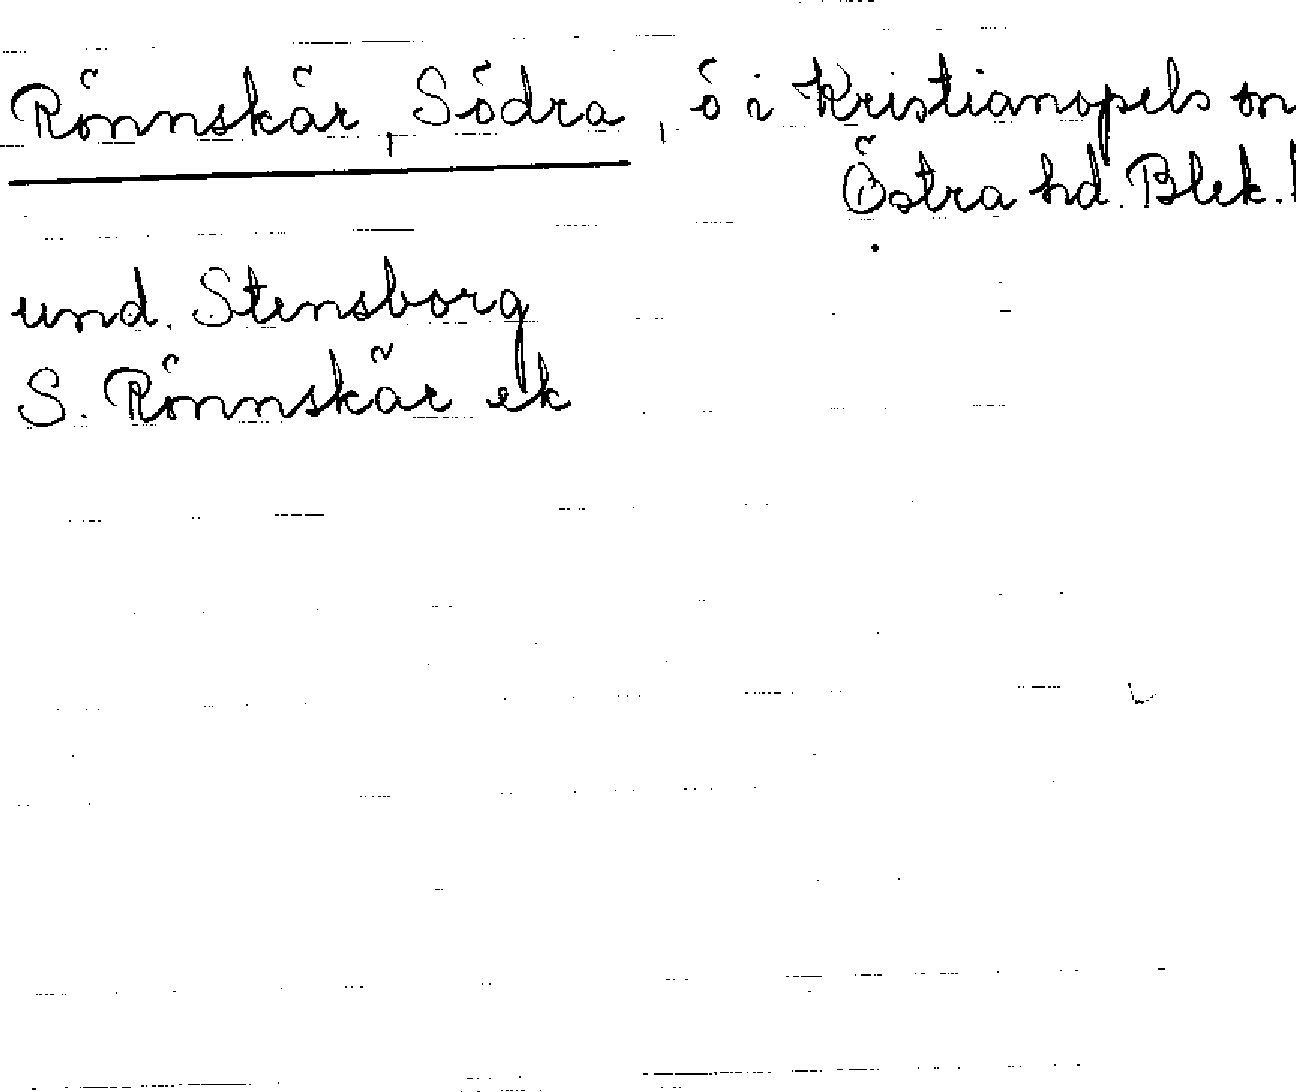 Rönnskär, Södra, ö i Kristianopels sn
Östra hd. Blek. l
und. Stensborg
S. Rönnskär ek